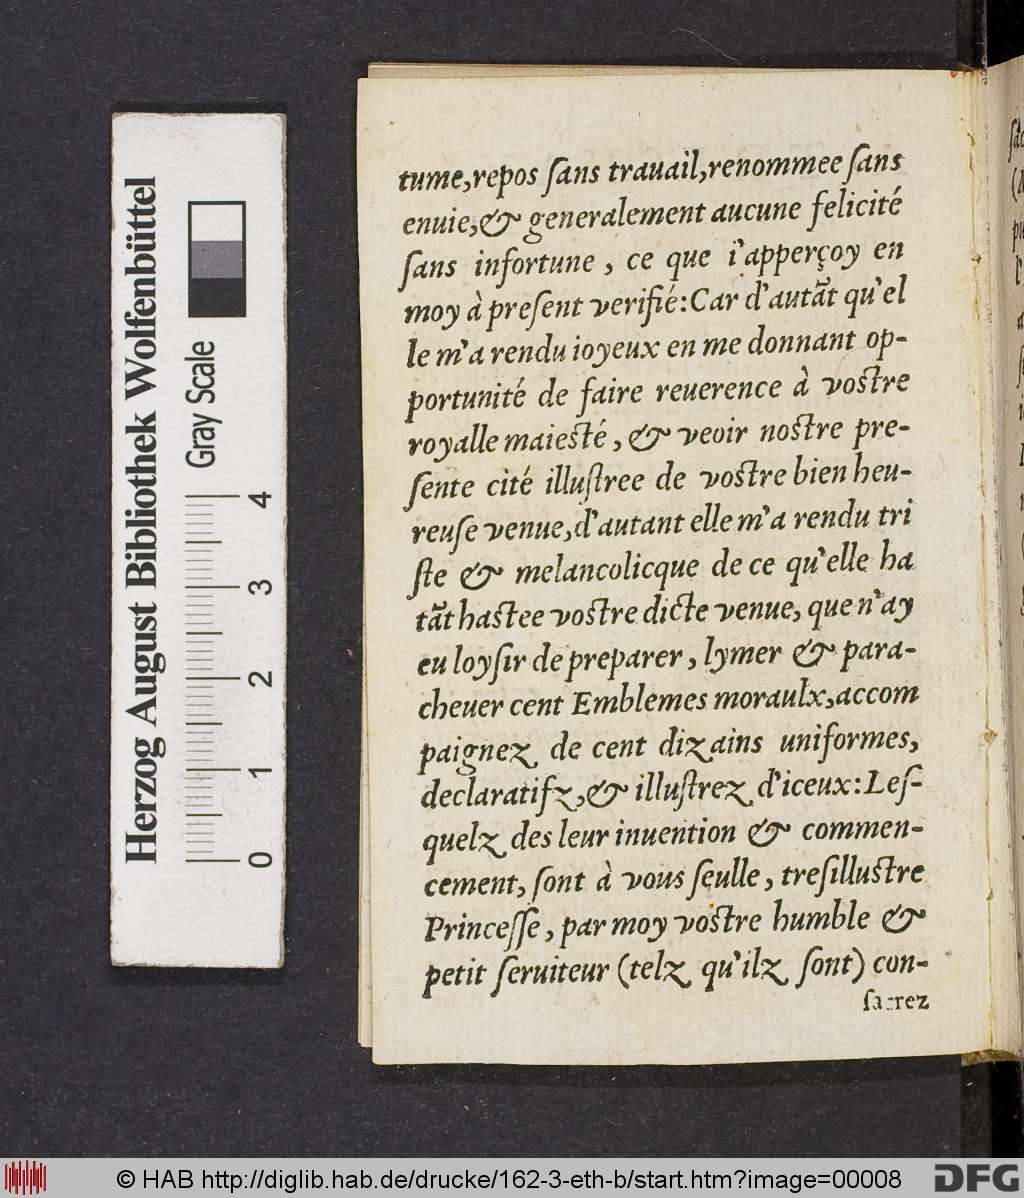 tume,repos ſans trauail,renommee ſans
enuie,& generalement aucune felicité
ſans infortune , ce que i'apperçoy en
moy à preſent verifié:Car d'autāt qu'el
le m'a rendu ioyeux en me donnant op-
portunité de faire reuerence à voſtre
royalle maieſté , & veoir noſtre pre-
ſente cité illuſtree de voſtre bien heu-
reuſe venue,d'autant elle m'a rendu tri
ſte & melancolicque de ce qu'elle ha
tāt haſtee voſtre dicte venue, que n'ay
eu loyſir de preparer , lymer & para-
cheuer cent Emblemes moraulx,accom
paignez de cent dizains uniformes,
declaratifz,& illuſtrez d'iceux:Leſ-
quelz des leur inuention & commen-
cement, ſont à vous ſeulle , treſilluſtre
Princeſſe , par moy voſtre humble &
petit ſeruiteur (telz qu'ilz ſont) con-
ſacrez
Herzog August Bibliothek Wolfenbüttel
Gray Scale
0 1 2 3 4
© HAB http://diglib.hab.de/drucke/162-3-eth-b/start.htm?image=00008
DFG